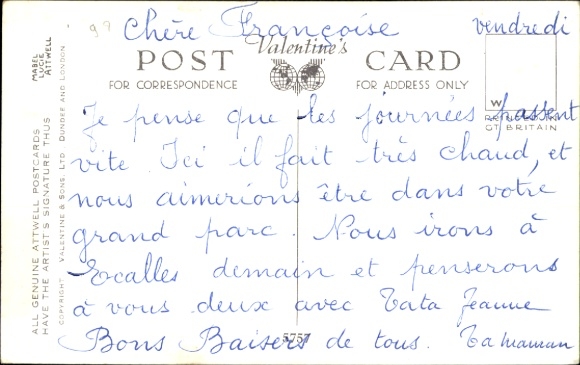 99
Chère Françoise vendredi
Valentine's
POST CARD
FOR CORRESPONDENCE FOR ADDRESS ONLY
MABEL
LUCIE
ATTWELL
ALL GENUINE ATTWELL POSTCARDS
HAVE THE ARTIST'S SIGNATURE THUS
COPYRIGHT VALENTINE & SONS, LTD DUNDEE AND LONDON
W
GT BRITAIN
Je pense que les journées passent
vite. Ici il fait très chaud, et
nous aimerions être dans votre
grand parc. Nous irons à
Escalles demain et penserons
à vous deux avec Tata Jeanne
Bons Baisers de tous. Ta maman
5757